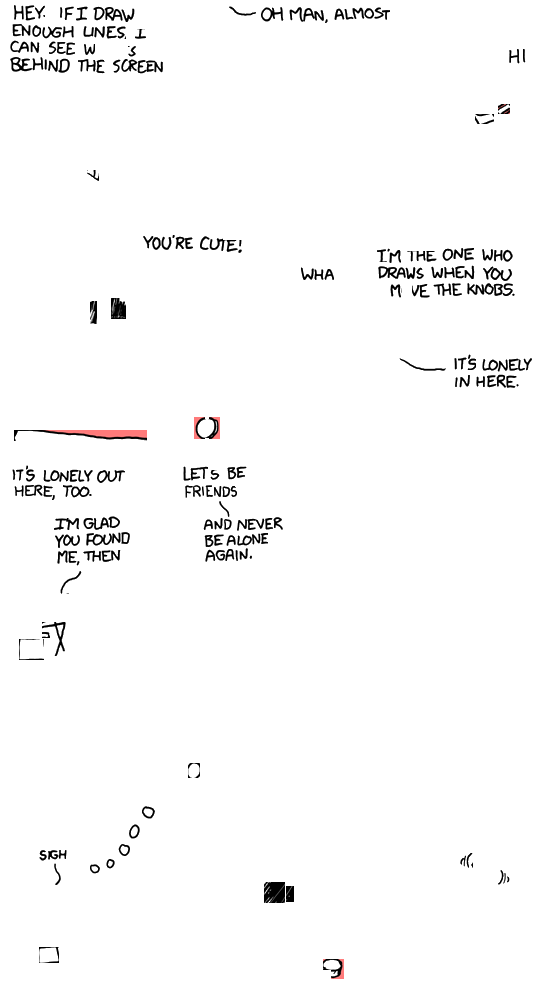 HEY. IF I DRAW
ENOUGH LINES, I
CAN SEE W S
BEHIND THE SCREEN
OH MAN, ALMOST
HI
YOU'RE CUTE!
WHA
I'M THE ONE WHO
DRAWS WHEN YOU
M VE THE KNOBS.
IT'S LONELY
IN HERE.
IT'S LONELY OUT
HERE, TOO.
LETS BE
FRIENDS
I'M GLAD
YOU FOUND
ME, THEN
AND NEVER
BE ALONE
AGAIN.
SIGH